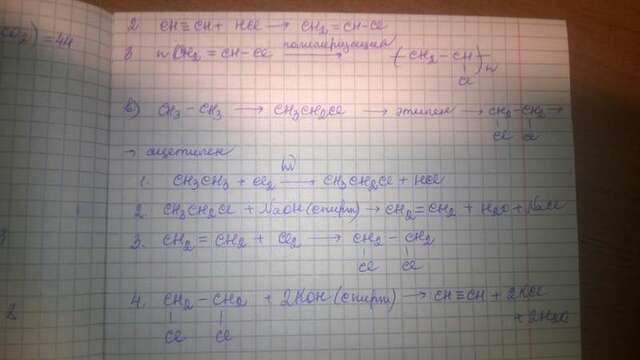 CO₂) = 44
2. CH≡CH + HCl → CH₂=CH-Cl
3 nCH₂=CH-Cl полимеризация → (CH₂-CH)n
Cl
в) CH₃-CH₃ → CH₃CH₂Cl → этилен → CH₂-CH₂ →
Cl Cl
→ ацетилен
1. CH₃CH₃ + Cl₂ hν → CH₃CH₂Cl + HCl
2. CH₃CH₂Cl + NaOH (спирт) → CH₂=CH₂ + H₂O + NaCl
3. CH₂=CH₂ + Cl₂ → CH₂-CH₂
Cl Cl
4. CH₂-CH₂ + 2KOH (спирт) → CH≡CH + 2KCl
+ 2H₂O
Cl Cl